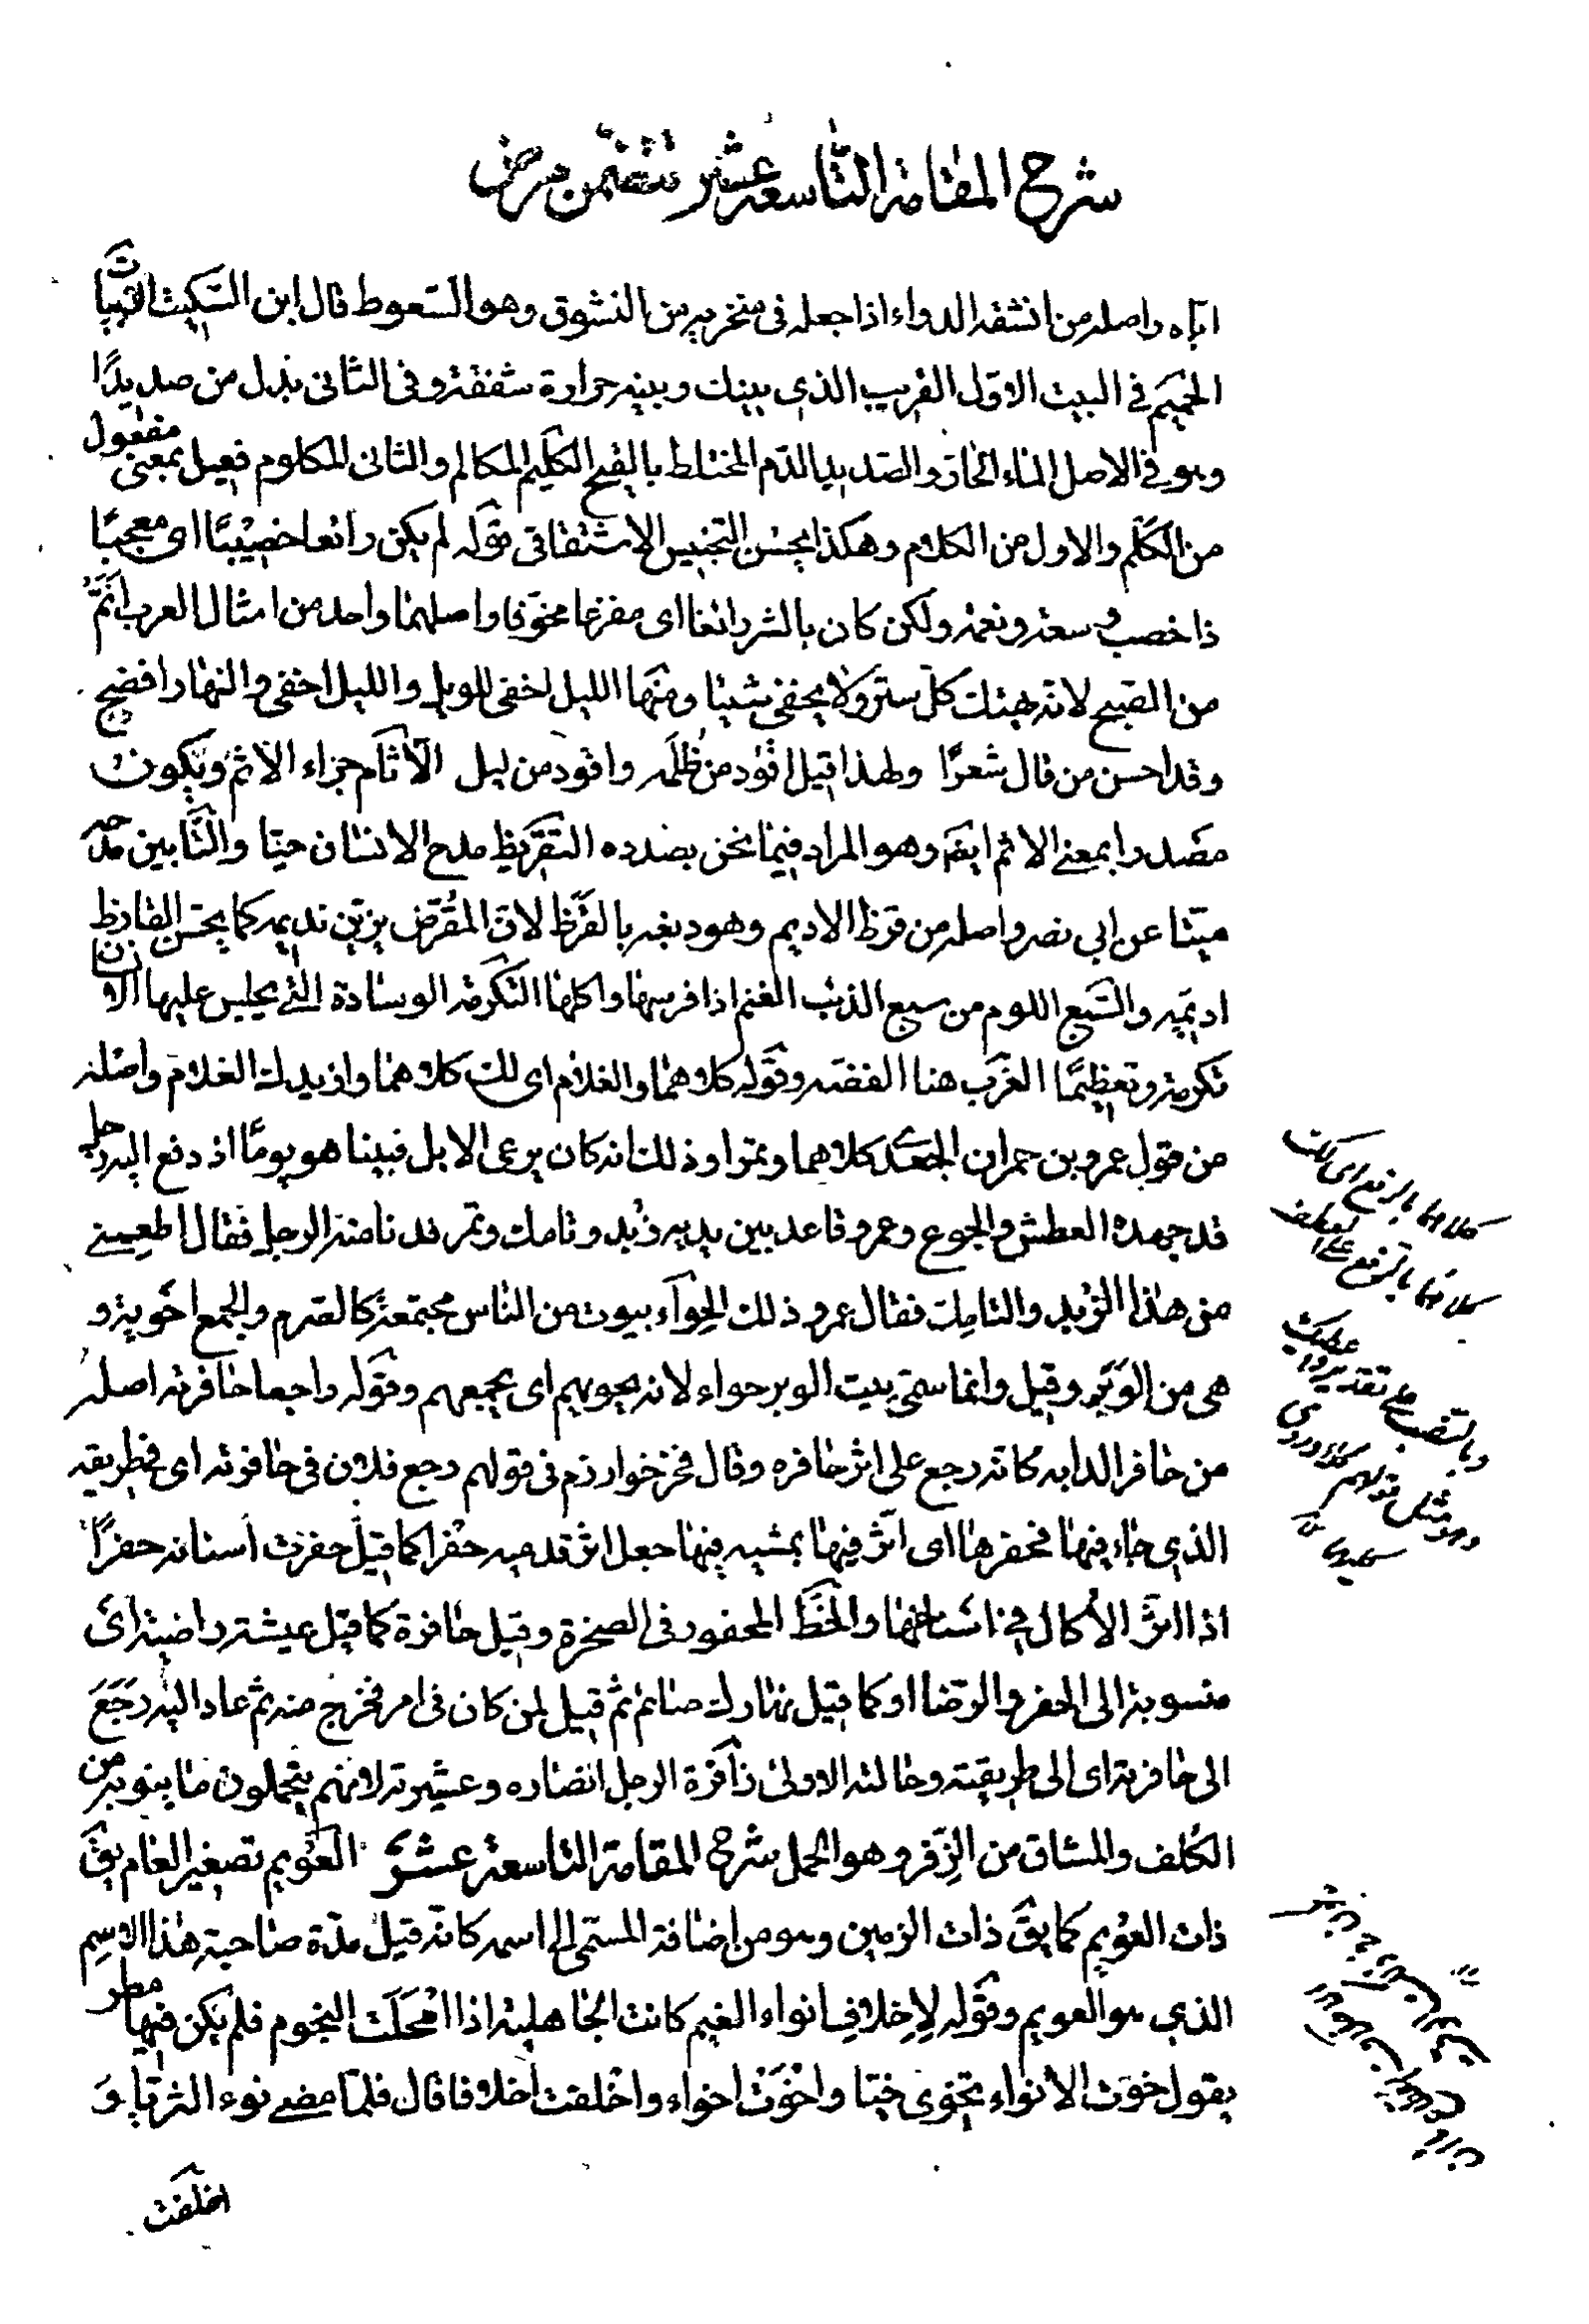 شرح المقامة التاسعة عشر تتضمن مرض
اياه واصله من انشقه الدواء اذا جعله فى منخريه من النشوق وهو السعوط قال ابن السكيت البيتان
الحميم فى البيت الاول القريب الذى بينك وبينه حرارة شفقة وفى الثانى بدل من صديدًا
وهو فى الاصل الماء الحار والصديد الدم المختلط بالقيح الكليم المكالم والثانى المكلوم فعيل بمعنى مفعول
من الكَلْم والاول من الكلام وهكذا يحسن التجنيس الاشتقاقى قوله لم يكن رائعا خصيبًا اى معجبًا
ذا خصب وسعة ونعمة ولكن كان بالشر رائعا اى مفزعا مخوفا واصلهما واحد من امثال العرب اَنَمُّ
من الصبح لانه يهتك كل ستر ولا يخفى شيئا ومنها الليل اخفى للويل والليل اخفى والنهار افضح
وقد احسن من قال شعرًا ولهذا قيل اقود من ظُلمَه واقود من ليل الآثام جزاء الاثم ويكون
مصدرا بمعنى الاثم ايضا وهو المراد فيما نحن بصدده التقريظ مدح الانسان حيّا والتّابين مدحه
ميتا عن ابى نصر واصله من قرظ الاديم وهو دبغه بالقرظ لان المقرّض يزيّن نديمه كما يحسن القارظ
اديمَه والسّبع اللوم من سبع الذئب الغنم اذا فرسها واكلها التكرمة الوسادة التى يجلس عليها الانسان
تكرمة وتعظيمًا الغَرَب هنا الفضة وقوله كلاهما والغلام اى لك كلاهما وازيدك الغلام واصله
من قول عمرو بن حمران الجعدى كلاهما وتمرا وذلك انه كان يرعى الابل فبينا هو يومًا اذ دفع اليه رجل
قد جهده العطش والجوع وعمرو قاعد بين يديه زُبد وتامك وتمر فدنا منه الرجل فقال اطعمنى
من هذا الزبد والتامك فقال عمرو ذلك الحِوآء بيوت من الناس مجتمعة كالصرم والجمع اخوية و
هى من الوبر وقيل وانما سمّى بيت الوبر حواء لانه يحويهم اى يجمعهم وقوله راجعا حافرته اصله
من حافر الدابه كانه رجع على اثر حافره وقال فخر خوارزم فى قولهم رجع فلان فى حافرته اى فى طريقه
الذى جاء فيها فحفرها اى اثّر فيها بمشيه فيها جعل اثر قدميه حفرا كما قيل حفرت اسنانه حفرًا
اذا اثّر الأكال فى اسناخها والخط المحفور فى الصخرة وقيل حافرة كما قيل عيشة راضية اى
منسوبة الى الحفر والرضا او كما قيل نهارك صائم ثم قيل لمن كان فى امر فخرج منه ثم عاد اليه رَجَعَ
الى حافرته اى الى طريقته وحالته الاولى زآفرة الرجل انصاره وعشيرته لانهم يتحملون ما ينوبه من
الكُلف والمشاق من الزِفر وهو الحمل شرح المقامة التاسعة عشر العُويم تصغير العام يقَ
ذات العويم كما يقَ ذات الزمين وهو من اضافة المسمّى الى اسمه كانه قيل مدّة صاحبة هذا الاسم
الذى هو العويم وقوله لإخلافِ انواء الغيم كانت الجاهلية اذا امحلت النجوم فلم يكن فيها مطر
يقول خوت الأنواء تخوى خيّا واخْوَتْ اخواء واخلفت اخلافا قال فلمّا مضى نوء الثريّا وَ
اخلفت
كلاهما بالرفع اى لك
كلاهما بالرفع
وبالنصب على تقدير